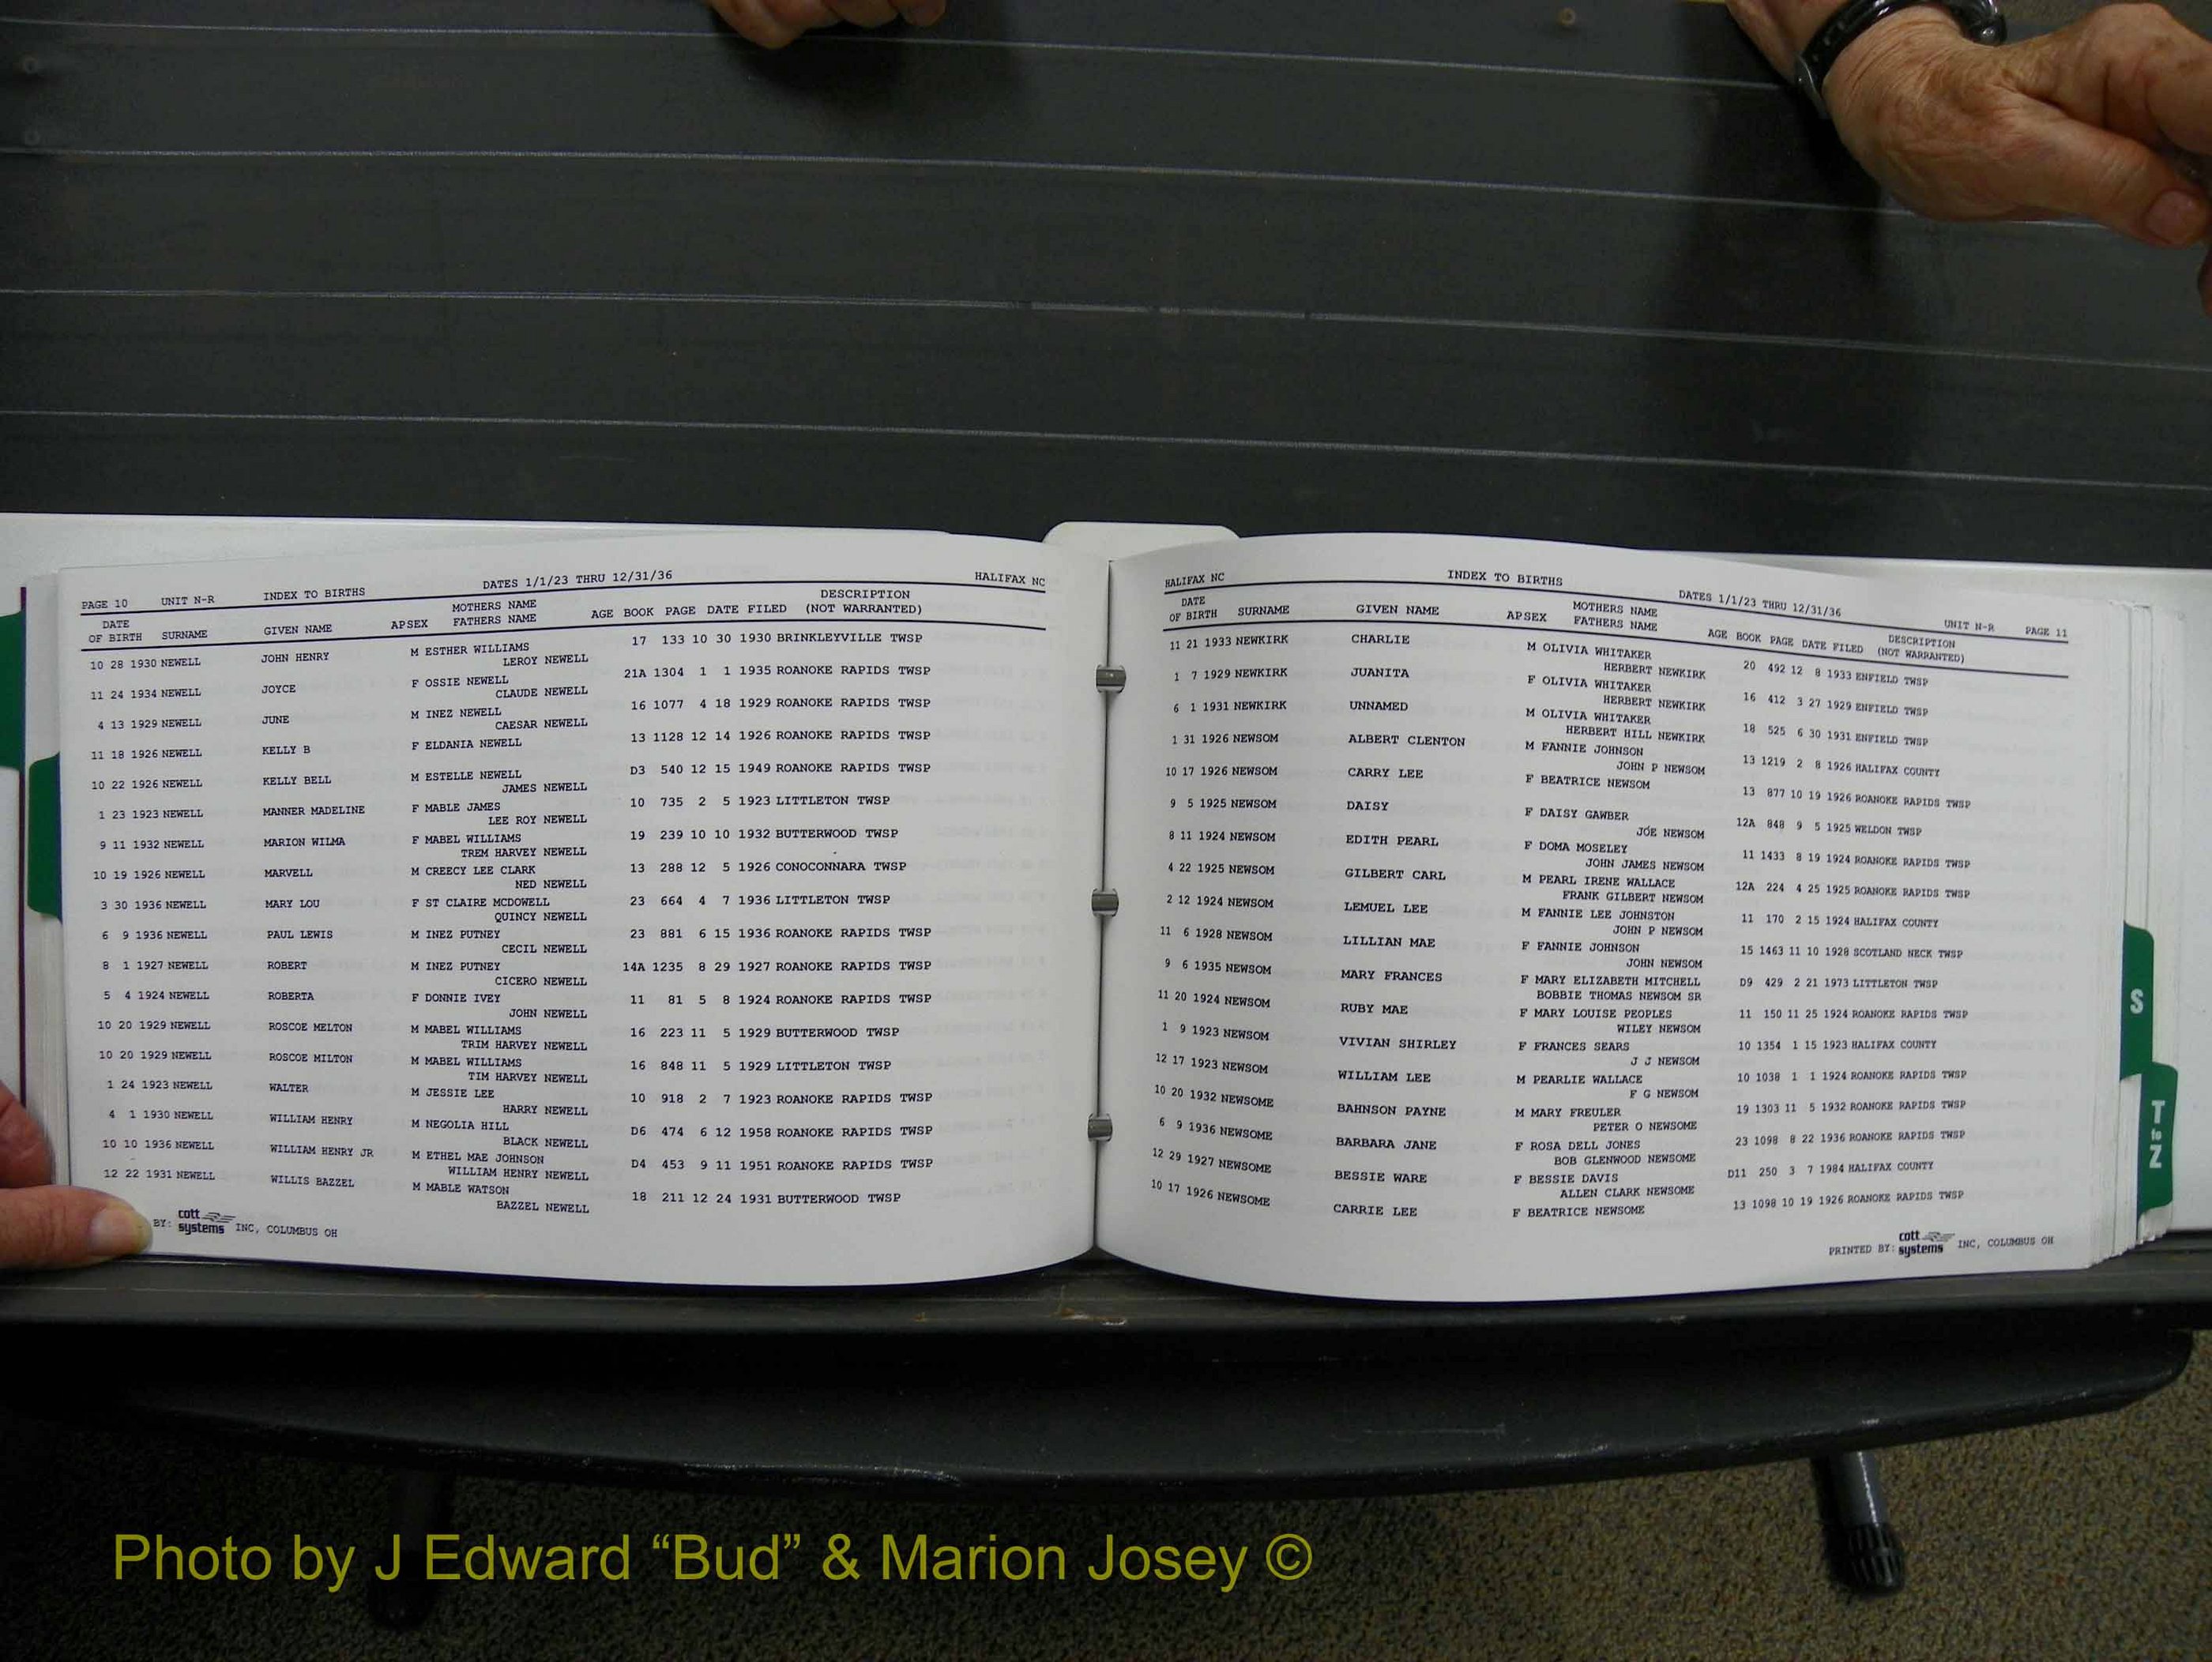 PAGE 10 UNIT N-R INDEX TO BIRTHS DATES 1/1/23 THRU 12/31/36 HALIFAX NC
DATE OF BIRTH SURNAME GIVEN NAME AP SEX MOTHERS NAME FATHERS NAME AGE BOOK PAGE DATE FILED DESCRIPTION (NOT WARRANTED)
10 28 1930 NEWELL JOHN HENRY M ESTHER WILLIAMS 17 133 10 30 1930 BRINKLEYVILLE TWSP
LEROY NEWELL
11 24 1934 NEWELL JOYCE F OSSIE NEWELL 21A 1304 1 1 1935 ROANOKE RAPIDS TWSP
CLAUDE NEWELL
4 13 1929 NEWELL JUNE M INEZ NEWELL 16 1077 4 18 1929 ROANOKE RAPIDS TWSP
CAESAR NEWELL
11 18 1926 NEWELL KELLY B F ELDANIA NEWELL 13 1128 12 14 1926 ROANOKE RAPIDS TWSP
10 22 1926 NEWELL KELLY BELL M ESTELLE NEWELL D3 540 12 15 1949 ROANOKE RAPIDS TWSP
JAMES NEWELL
1 23 1923 NEWELL MANNER MADELINE F MABLE JAMES 10 735 2 5 1923 LITTLETON TWSP
LEE ROY NEWELL
9 11 1932 NEWELL MARION WILMA F MABEL WILLIAMS 19 239 10 10 1932 BUTTERWOOD TWSP
TREM HARVEY NEWELL
10 19 1926 NEWELL MARVELL M CREECY LEE CLARK 13 288 12 5 1926 CONOCONNARA TWSP
NED NEWELL
3 30 1936 NEWELL MARY LOU F ST CLAIRE MCDOWELL 23 664 4 7 1936 LITTLETON TWSP
QUINCY NEWELL
6 9 1936 NEWELL PAUL LEWIS M INEZ PUTNEY 23 881 6 15 1936 ROANOKE RAPIDS TWSP
CECIL NEWELL
8 1 1927 NEWELL ROBERT M INEZ PUTNEY 14A 1235 8 29 1927 ROANOKE RAPIDS TWSP
CICERO NEWELL
5 4 1924 NEWELL ROBERTA F DONNIE IVEY 11 81 5 8 1924 ROANOKE RAPIDS TWSP
JOHN NEWELL
10 20 1929 NEWELL ROSCOE MELTON M MABEL WILLIAMS 16 223 11 5 1929 BUTTERWOOD TWSP
TRIM HARVEY NEWELL
10 20 1929 NEWELL ROSCOE MILTON M MABEL WILLIAMS 16 848 11 5 1929 LITTLETON TWSP
TIM HARVEY NEWELL
1 24 1923 NEWELL WALTER M JESSIE LEE 10 918 2 7 1923 ROANOKE RAPIDS TWSP
HARRY NEWELL
4 1 1930 NEWELL WILLIAM HENRY M NEGOLIA HILL D6 474 6 12 1958 ROANOKE RAPIDS TWSP
BLACK NEWELL
10 10 1936 NEWELL WILLIAM HENRY JR M ETHEL MAE JOHNSON D4 453 9 11 1951 ROANOKE RAPIDS TWSP
WILLIAM HENRY NEWELL
12 22 1931 NEWELL WILLIS BAZZEL M MABLE WATSON 18 211 12 24 1931 BUTTERWOOD TWSP
BAZZEL NEWELL
BY: cott systems INC, COLUMBUS OH
HALIFAX NC INDEX TO BIRTHS DATES 1/1/23 THRU 12/31/36 UNIT N-R PAGE 11
DATE OF BIRTH SURNAME GIVEN NAME AP SEX MOTHERS NAME FATHERS NAME AGE BOOK PAGE DATE FILED DESCRIPTION (NOT WARRANTED)
11 21 1933 NEWKIRK CHARLIE M OLIVIA WHITAKER 20 492 12 8 1933 ENFIELD TWSP
HERBERT NEWKIRK
1 7 1929 NEWKIRK JUANITA F OLIVIA WHITAKER 16 412 3 27 1929 ENFIELD TWSP
HERBERT NEWKIRK
6 1 1931 NEWKIRK UNNAMED M OLIVIA WHITAKER 18 525 6 30 1931 ENFIELD TWSP
HERBERT HILL NEWKIRK
1 31 1926 NEWSOM ALBERT CLENTON M FANNIE JOHNSON 13 1219 2 8 1926 HALIFAX COUNTY
JOHN P NEWSOM
10 17 1926 NEWSOM CARRY LEE F BEATRICE NEWSOM 13 877 10 19 1926 ROANOKE RAPIDS TWSP
9 5 1925 NEWSOM DAISY F DAISY GAWBER 12A 848 9 5 1925 WELDON TWSP
JOE NEWSOM
8 11 1924 NEWSOM EDITH PEARL F DOMA MOSELEY 11 1433 8 19 1924 ROANOKE RAPIDS TWSP
JOHN JAMES NEWSOM
4 22 1925 NEWSOM GILBERT CARL M PEARL IRENE WALLACE 12A 224 4 25 1925 ROANOKE RAPIDS TWSP
FRANK GILBERT NEWSOM
2 12 1924 NEWSOM LEMUEL LEE M FANNIE LEE JOHNSTON 11 170 2 15 1924 HALIFAX COUNTY
JOHN P NEWSOM
11 6 1928 NEWSOM LILLIAN MAE F FANNIE JOHNSON 15 1463 11 10 1928 SCOTLAND NECK TWSP
JOHN NEWSOM
9 6 1935 NEWSOM MARY FRANCES F MARY ELIZABETH MITCHELL D9 429 2 21 1973 LITTLETON TWSP
BOBBIE THOMAS NEWSOM SR
11 20 1924 NEWSOM RUBY MAE F MARY LOUISE PEOPLES 11 150 11 25 1924 ROANOKE RAPIDS TWSP
WILEY NEWSOM
1 9 1923 NEWSOM VIVIAN SHIRLEY F FRANCES SEARS 10 1354 1 15 1923 HALIFAX COUNTY
J J NEWSOM
12 17 1923 NEWSOM WILLIAM LEE M PEARLIE WALLACE 10 1038 1 1 1924 ROANOKE RAPIDS TWSP
F G NEWSOM
10 20 1932 NEWSOME BAHNSON PAYNE M MARY FREULER 19 1303 11 5 1932 ROANOKE RAPIDS TWSP
PETER O NEWSOME
6 9 1936 NEWSOME BARBARA JANE F ROSA DELL JONES 23 1098 8 22 1936 ROANOKE RAPIDS TWSP
BOB GLENWOOD NEWSOME
12 29 1927 NEWSOME BESSIE WARE F BESSIE DAVIS D11 250 3 7 1984 HALIFAX COUNTY
ALLEN CLARK NEWSOME
10 17 1926 NEWSOME CARRIE LEE F BEATRICE NEWSOME 13 1098 10 19 1926 ROANOKE RAPIDS TWSP
PRINTED BY: cott systems INC, COLUMBUS OH
S
T to Z
Photo by J Edward “Bud” & Marion Josey ©